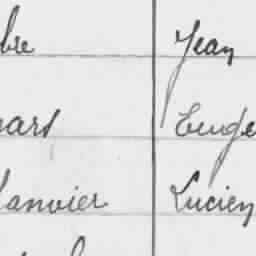 bre Jean
ars Euge
Janvier Lucien